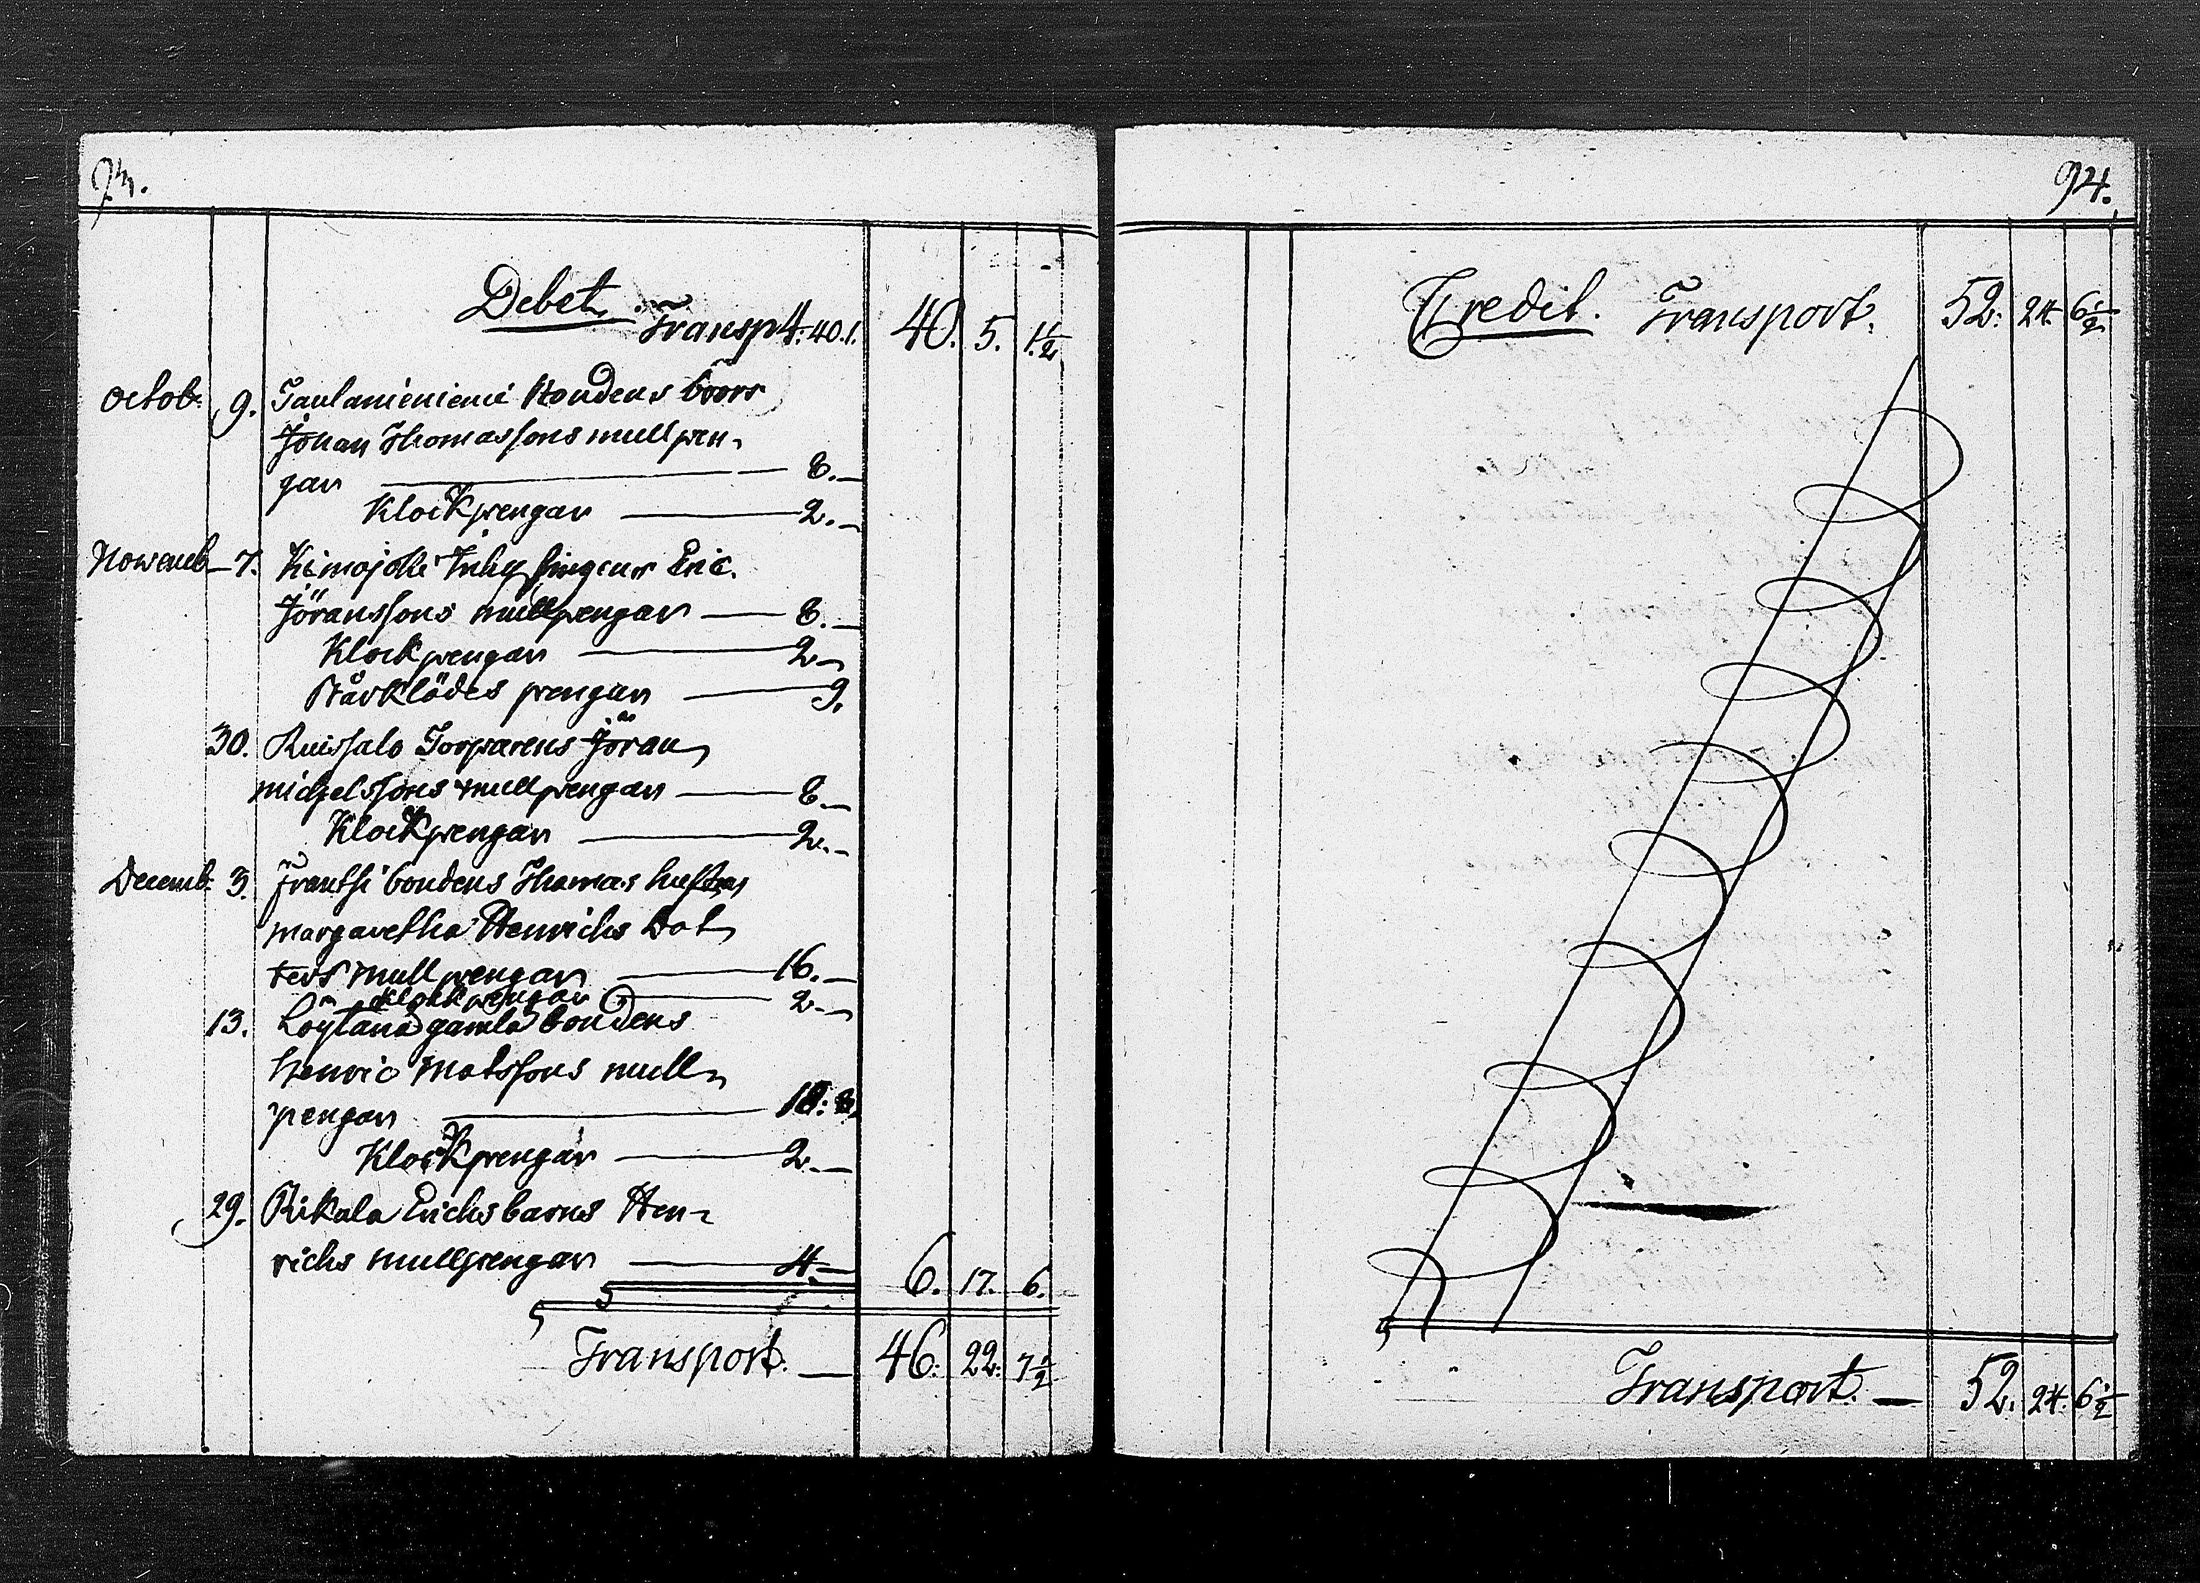 93.
Debet.
Transp 4:40.1. 40. 5. 1½
Octob: 9. Taulaniemieni Bondens broors
Jöhan Thomassons mullpen-
gar 8.—
Klockpengar 2.—
Novemb 7. Inhysingens Eric
Jöranssons mullpengar 8.—
Klockpengar 2.—
Bårklädes pengar 9.
30. Ruissalo Torparens Jöran
Michelssons mullpengar 8.—
Klockpengar 2.—
Decemb: 3. Frantsi bondens Thomas hustrus
Margaretha Henrichs Dot-
ters mullpengar 16.—
Klockpengar 2.—
13. Löytänä gamla bondens
Henric Matssons mull-
pengar
Klockpengar 2.—
29. Rikala Erichs barns Hen-
richs mullpengar 4.— 6. 17. 6.
Transport. — 46. 22. 7½
94.
Credit. Transport. 52. 24. 6½
Transport. — 52. 24. 6½